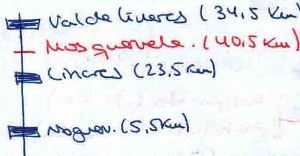 Valdelinares (34,5 Km)
Mosqueruela. (40,5 Km)
Linares (23,5 Km)
Noguer. (5,5 Km)